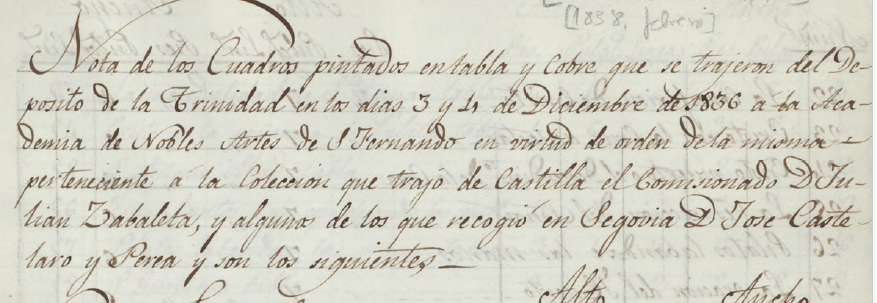 [1838, febrero]
Nota de los Cuadros pintados en tabla y Cobre que se trajeron del De-
posito de la Trinidad en los dias 3 y 4 de Diciembre de 1836 a la Aca-
demia de Nobles Artes de S Fernando en virtud de orden de la misma
perteneciente á la Coleccion que trajo de Castilla el Comisionado D Ju-
lian Zabaleta, y algunos de los que recogió en Segovia D Jose Caste-
laro y Perea y son los siguientes —
Alto Ancho